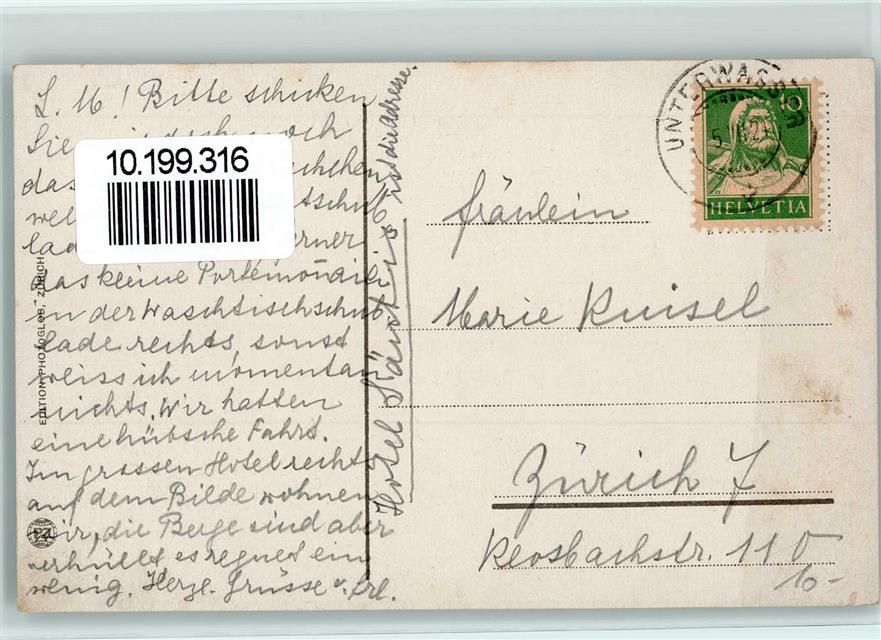 L. M! Bitte schicken
Sie noch
das
wei
lad ferner
das kleine Portemonaie
in der Waschtischschub
lade rechts, sonst
weiss ich momentan
nichts. Wir hatten
eine hübsche Fahrt.
Im grossen Hotel rechts
auf dem Bilde wohnen
wir, die Berge sind aber
verhüllt, es regnet ein
wenig. Herzl. Grüsse
Hotel Säntis ist die Adresse.
10.199.316
EDITION PHOTOGLOB - ZÜRICH
PZ
UNTERWASSER
10
HELVETIA
Fräulein
Marie Knisel
Zürich 7
Klosbachstr. 110
10-